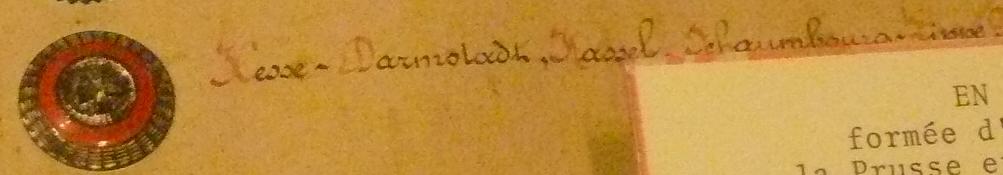 Hesse-Darmstadt, Kassel, Schaumbourg-Lippe
EN
formée d'
la Prusse e